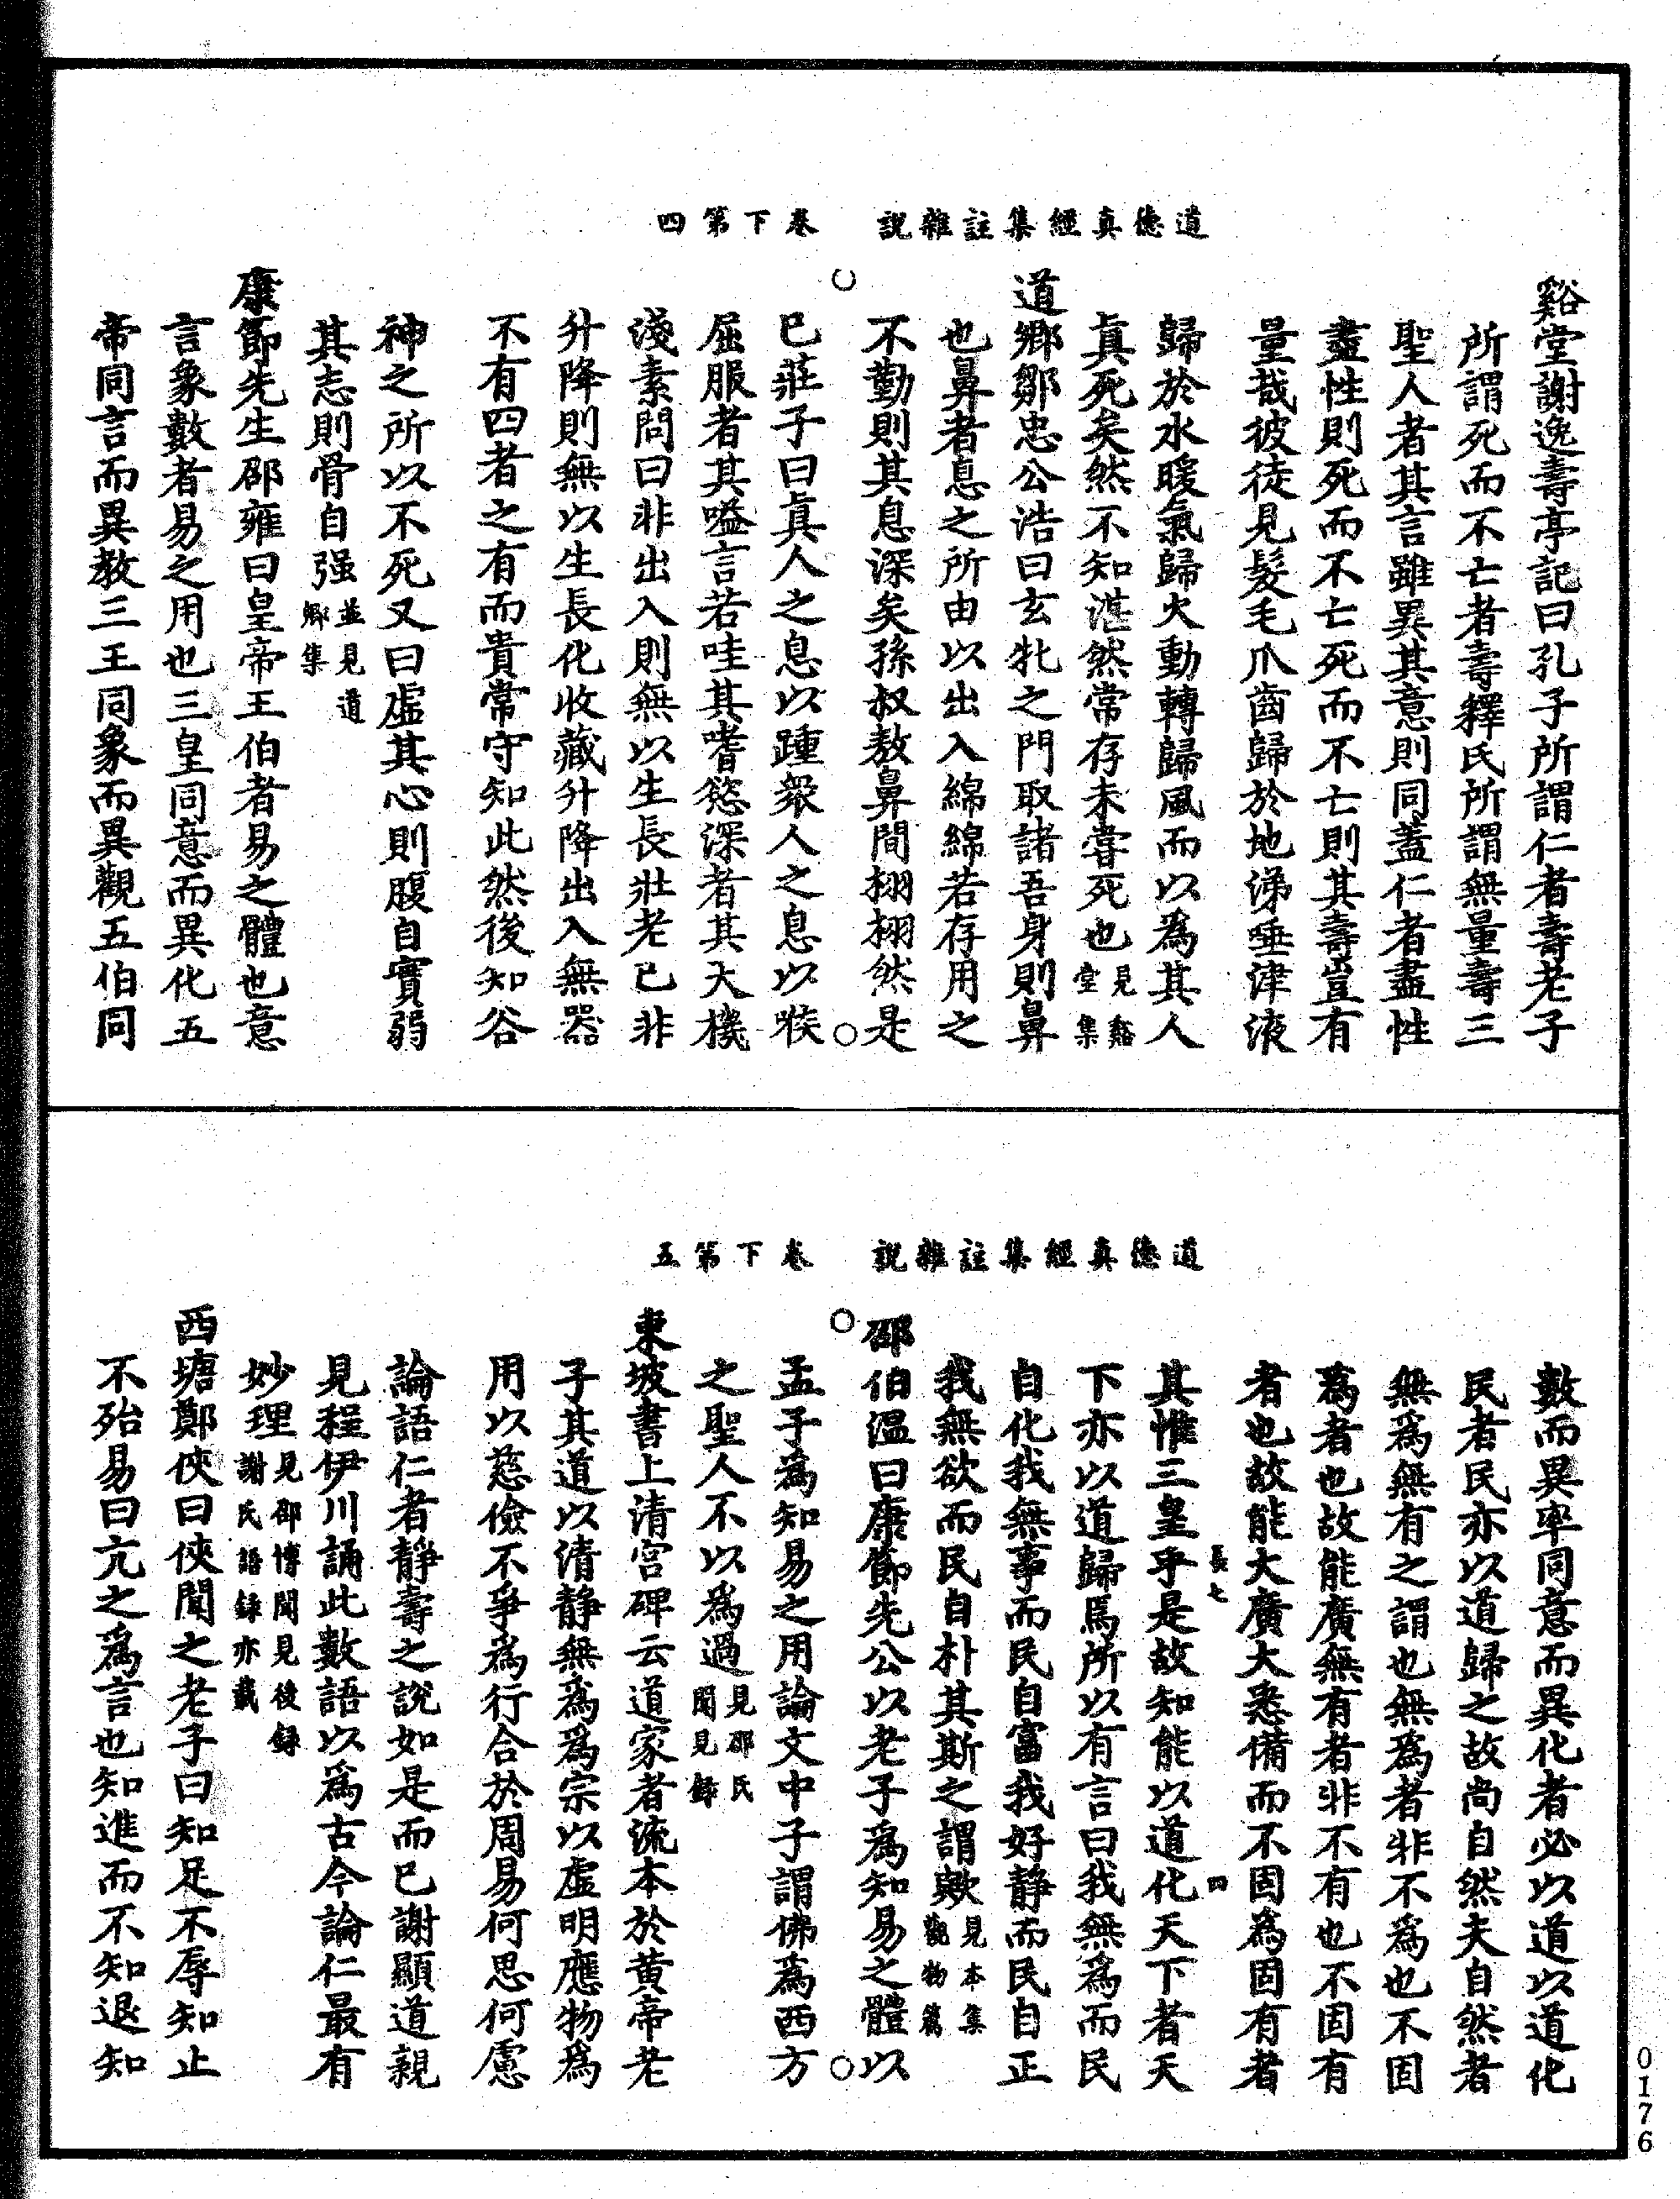 道德真經集註雜說　卷下第四
谿堂謝逸壽亭記曰孔子所謂仁者壽老子
所謂死而不亡者壽釋氏所謂無量壽三
聖人者其言雖異其意則同蓋仁者盡性
盡性則死而不亡死而不亡則其壽豈有
量哉彼徒見髮毛爪齒歸於地涕唾津液
歸於水暖氣歸火動轉歸風而以為其人
真死矣然不知湛然常存未嘗死也見谿堂集
道鄉鄒忠公浩曰玄牝之門取諸吾身則鼻
也鼻者息之所由以出入綿綿若存用之
不勤則其息深矣孫叔敖鼻間栩栩然是
已莊子曰真人之息以踵衆人之息以喉
屈服者其嗌言若哇其嗜慾深者其天機
淺素問曰非出入則無以生長壯老已非
升降則無以生長化收藏升降出入無器
不有四者之有而貴常守知此然後知谷
神之所以不死又曰虛其心則腹自實弱
其志則骨自强並見道鄉集
康節先生邵雍曰皇帝王伯者易之體也意
言象數者易之用也三皇同意而異化五
帝同言而異教三王同象而異觀五伯同
道德真經集註雜說　卷下第五
數而異率同意而異化者必以道以道化
民者民亦以道歸之故尚自然夫自然者
無為無有之謂也無為者非不為也不固
為者也故能廣無有者非不有也不固有
者也故能大廣大悉備而不固為固有者
長七　四
其惟三皇乎是故知能以道化天下者天
下亦以道歸焉所以有言曰我無為而民
自化我無事而民自富我好靜而民自正
我無欲而民自朴其斯之謂歟見本集觀物篇
邵伯溫曰康節先公以老子為知易之體以
孟子為知易之用論文中子謂佛為西方
之聖人不以為過見邵氏聞見錄
東坡書上清宮碑云道家者流本於黄帝老
子其道以清靜無為為宗以虛明應物為
用以慈儉不爭為行合於周易何思何慮
論語仁者靜壽之說如是而已謝顯道親
見程伊川誦此數語以為古今論仁最有
妙理見邵博聞見後錄謝氏語錄亦載
西塘鄭俠曰俠聞之老子曰知足不辱知止
不殆易曰亢之為言也知進而不知退知
0176